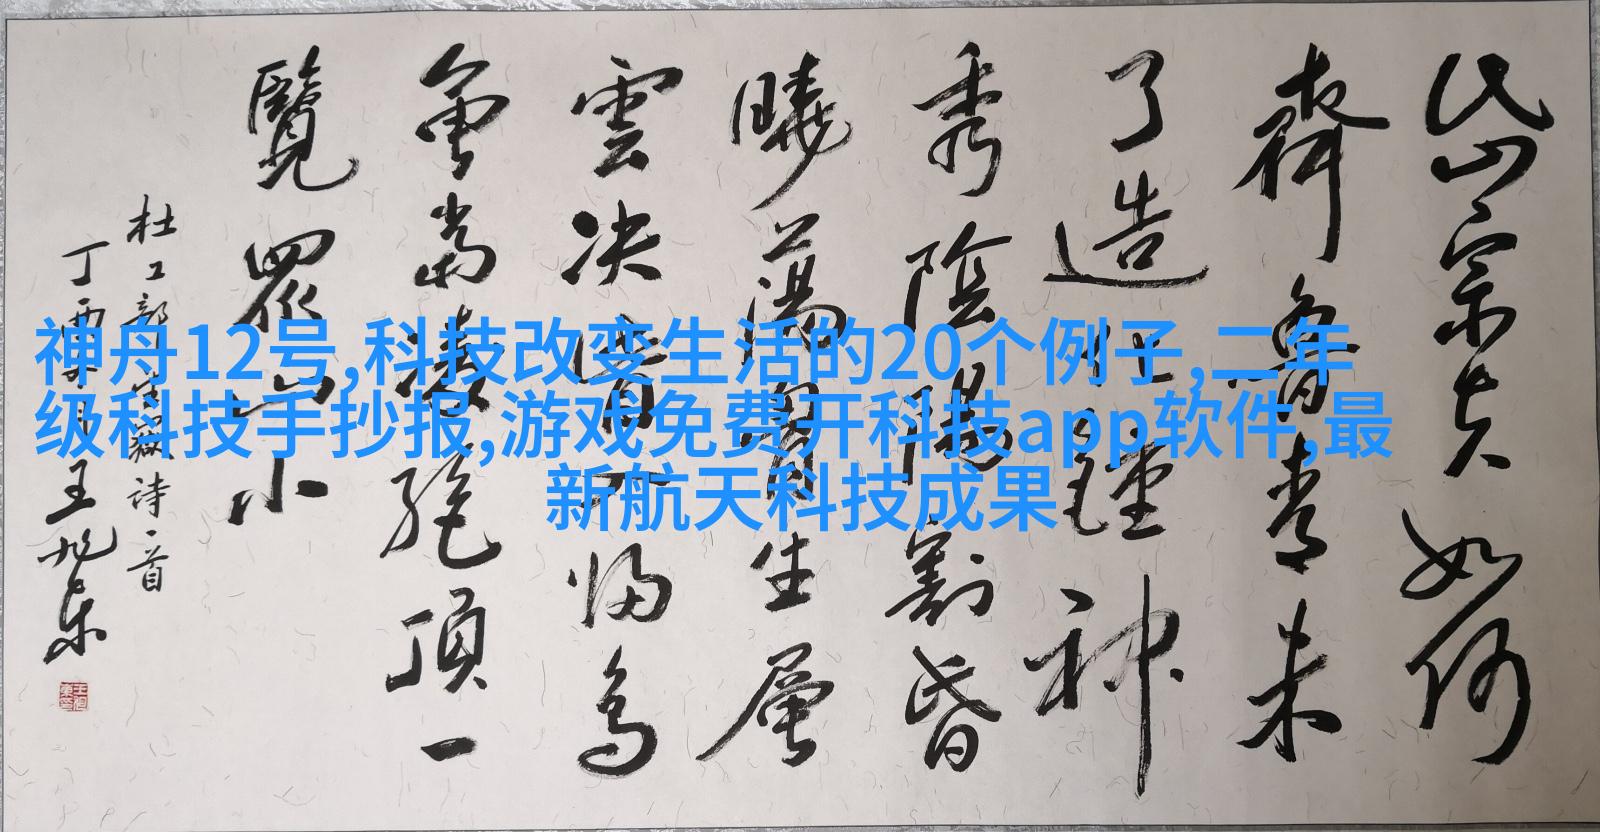 岱宗夫如何
齊魯青未
了造化鍾神
秀陰陽割昏
曉蕩胷生層
雲决眥入歸鳥
會當凌絕頂一
覽眾山小
杜工部望嶽詩一首
丁酉 王旭东
神舟12号,科技改变生活的20个例子,二年
级科技手抄报,游戏免费开科技app软件,最
新航天科技成果